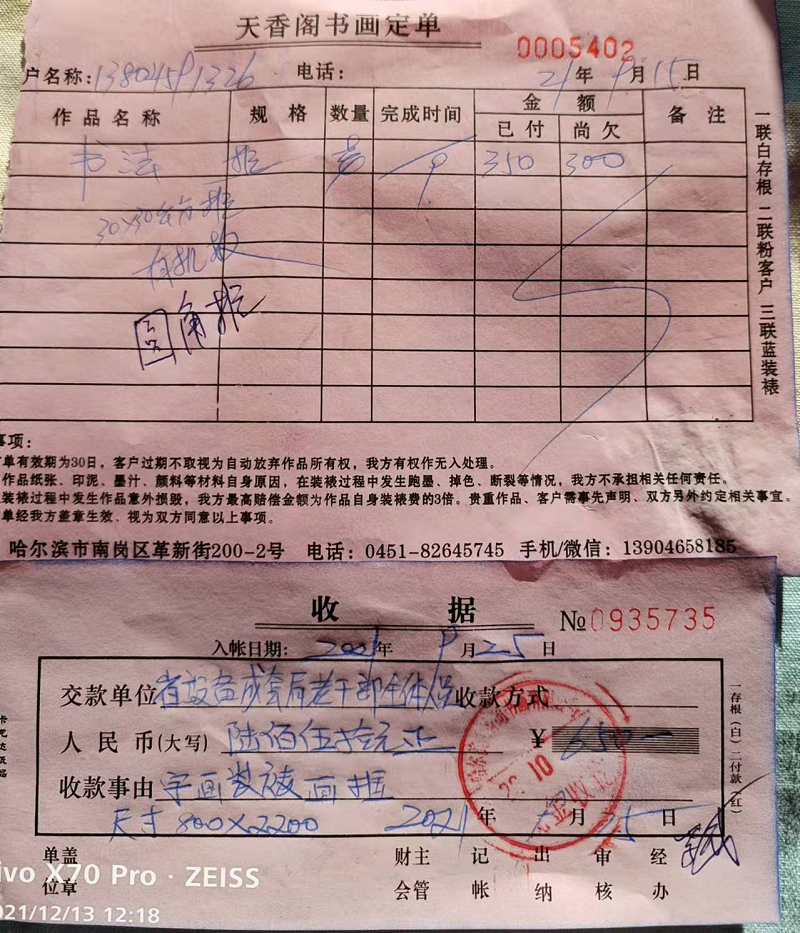 天香阁书画定单
0005402
户名称: 电话: 21年9月15日
作品名称 规格 数量 完成时间 金额 备注
已付 尚欠
书法 框 350 300
30×30 框
有机板
圆角框
一联白存根 二联粉客户 三联蓝装裱
事项:
单有效期为30日，客户过期不取视为自动放弃作品所有权，我方有权作无人处理。
作品纸张、印泥、墨汁、颜料等材料自身原因，在装裱过程中发生跑墨、掉色、断裂等情况，我方不承担相关任何责任。
装裱过程中发生作品意外损毁，我方最高赔偿金额为作品自身装裱费的3倍。贵重作品、客户需事先声明、双方另外约定相关事宜。
单经我方盖章生效、视为双方同意以上事项。
哈尔滨市南岗区革新街200-2号 电话：0451-82645745 手机/微信：13904658185
收据 №0935735
入帐日期: 2021年9月25日
交款单位 省设备成套局老干部全体 收款方式
人民币(大写) 陆佰伍拾元正 ¥650一
收款事由 字画装裱画框
尺寸800×2200 2021年 月25日
一存根(白)二付款(红)
单盖 财主 记 出 审 经
位章 会管 帐 纳 核 办
vivo X70 Pro · ZEISS
2021/12/13 12:18